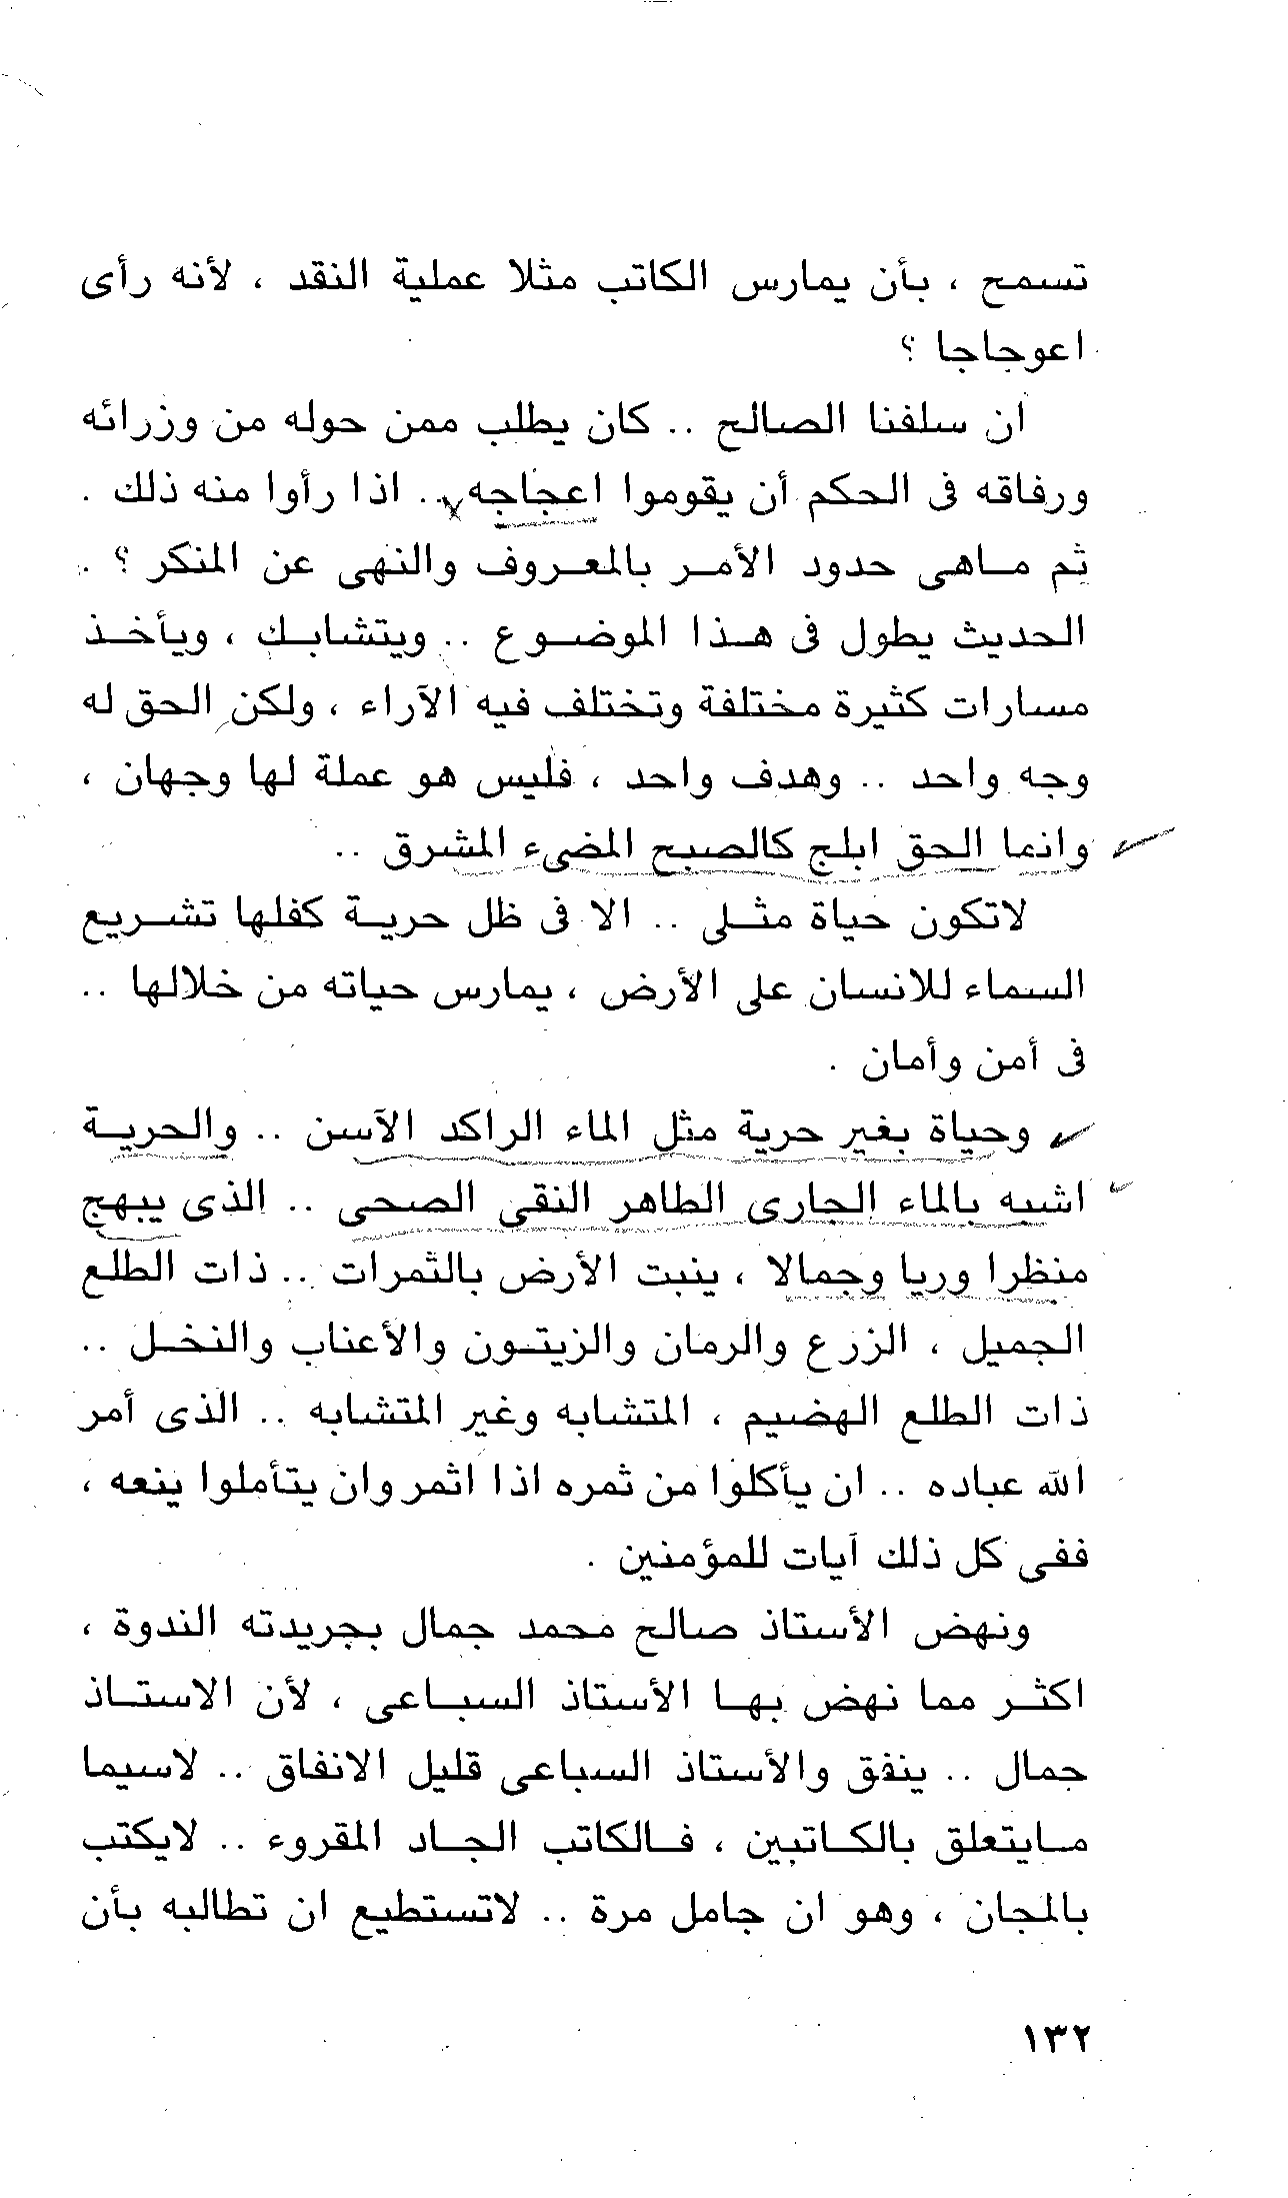 تسمح ، بأن يمارس الكاتب مثلا عملية النقد ، لأنه رأى
اعوجاجا ؟
ان سلفنا الصالح .. كان يطلب ممن حوله من وزرائه
ورفاقه فى الحكم أن يقوموا اعجاجه .. اذا رأوا منه ذلك .
ثم ماهى حدود الأمر بالمعروف والنهى عن المنكر ؟ .
الحديث يطول فى هذا الموضوع .. ويتشابك ، ويأخذ
مسارات كثيرة مختلفة وتختلف فيه الآراء ، ولكن الحق له
وجه واحد .. وهدف واحد ، فليس هو عملة لها وجهان ،
وانما الحق ابلج كالصبح المضىء المشرق ..
لاتكون حياة مثلى .. الا فى ظل حرية كفلها تشريع
السماء للانسان على الأرض ، يمارس حياته من خلالها ..
فى أمن وأمان .
وحياة بغير حرية مثل الماء الراكد الآسن .. والحرية
اشبه بالماء الجارى الطاهر النقى الصحى .. الذى يبهج
منظرا وريا وجمالا ، ينبت الأرض بالثمرات .. ذات الطلع
الجميل ، الزرع والرمان والزيتون والأعناب والنخل ..
ذات الطلع الهضيم ، المتشابه وغير المتشابه .. الذى أمر
الله عباده .. ان يأكلوا من ثمره اذا اثمر وان يتأملوا ينعه ،
ففى كل ذلك آيات للمؤمنين .
ونهض الأستاذ صالح محمد جمال بجريدته الندوة ،
اكثر مما نهض بها الأستاذ السباعى ، لأن الاستاذ
جمال .. ينفق والأستاذ السباعى قليل الانفاق .. لاسيما
مايتعلق بالكاتبين ، فالكاتب الجاد المقروء .. لايكتب
بالمجان ، وهو ان جامل مرة .. لاتستطيع ان تطالبه بأن
١٣٢